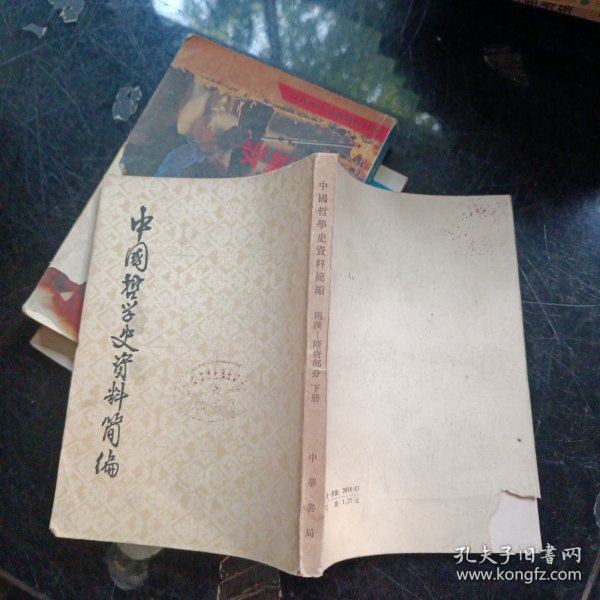 中國哲学史資料簡編
中國哲學史資料簡編
兩漢—隋唐部分
下册
中華書局
2018·83
1.25元
孔夫子旧书网
www.kongfz.com